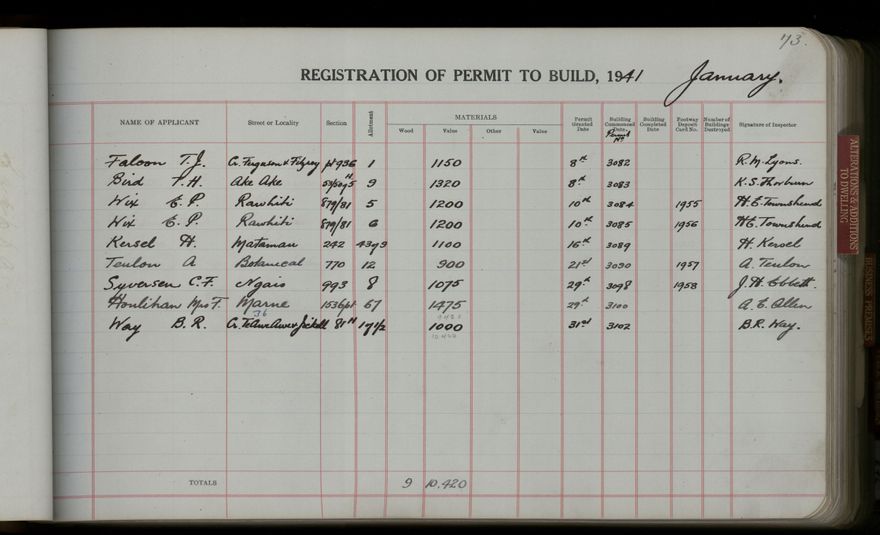 73.
REGISTRATION OF PERMIT TO BUILD, 1941 January.
NAME OF APPLICANT Street or Locality Section Allotment MATERIALS Wood Value Other Value Permit Granted Date Building Commenced Date. Permit No Building Completed Date Footway Deposit Card No. Number of Buildings Destroyed Signature of Inspector
Falcon T.J. Cr. Ferguson & Fitzroy pt 936 1 1150 8th 3082 R.M. Lyons.
Bird H. Ake Ake 9 1320 8th 3083 K.S. Thorburn
Wix C.P. Rawhiti 879/81 5 1200 10th 3084 1955 H.E. Townshend
Wix C.P. Rawhiti 879/81 6 1200 10th 3085 1956 H.E. Townshend
Kersel H. Matamau 242 43 1100 16th 3089 H. Kersel
Teulon A Botanical 770 12 900 21st 3090 1957 A. Teulon
Syversen C.F. Ngaio 993 8 1075 29th 3098 1958 J.H.
Houlihan Mrs F. Marne 1536pt 67 1475 29th 3100 A.E. Allen
36 9420
Way B.R. Cr. Te Awe Awe & 1000 31st 3102 B.R. Way.
10420
TOTALS 9 10,420
ALTERATIONS & ADDITIONS
TO DWELLING
BUSINESS PREMISES